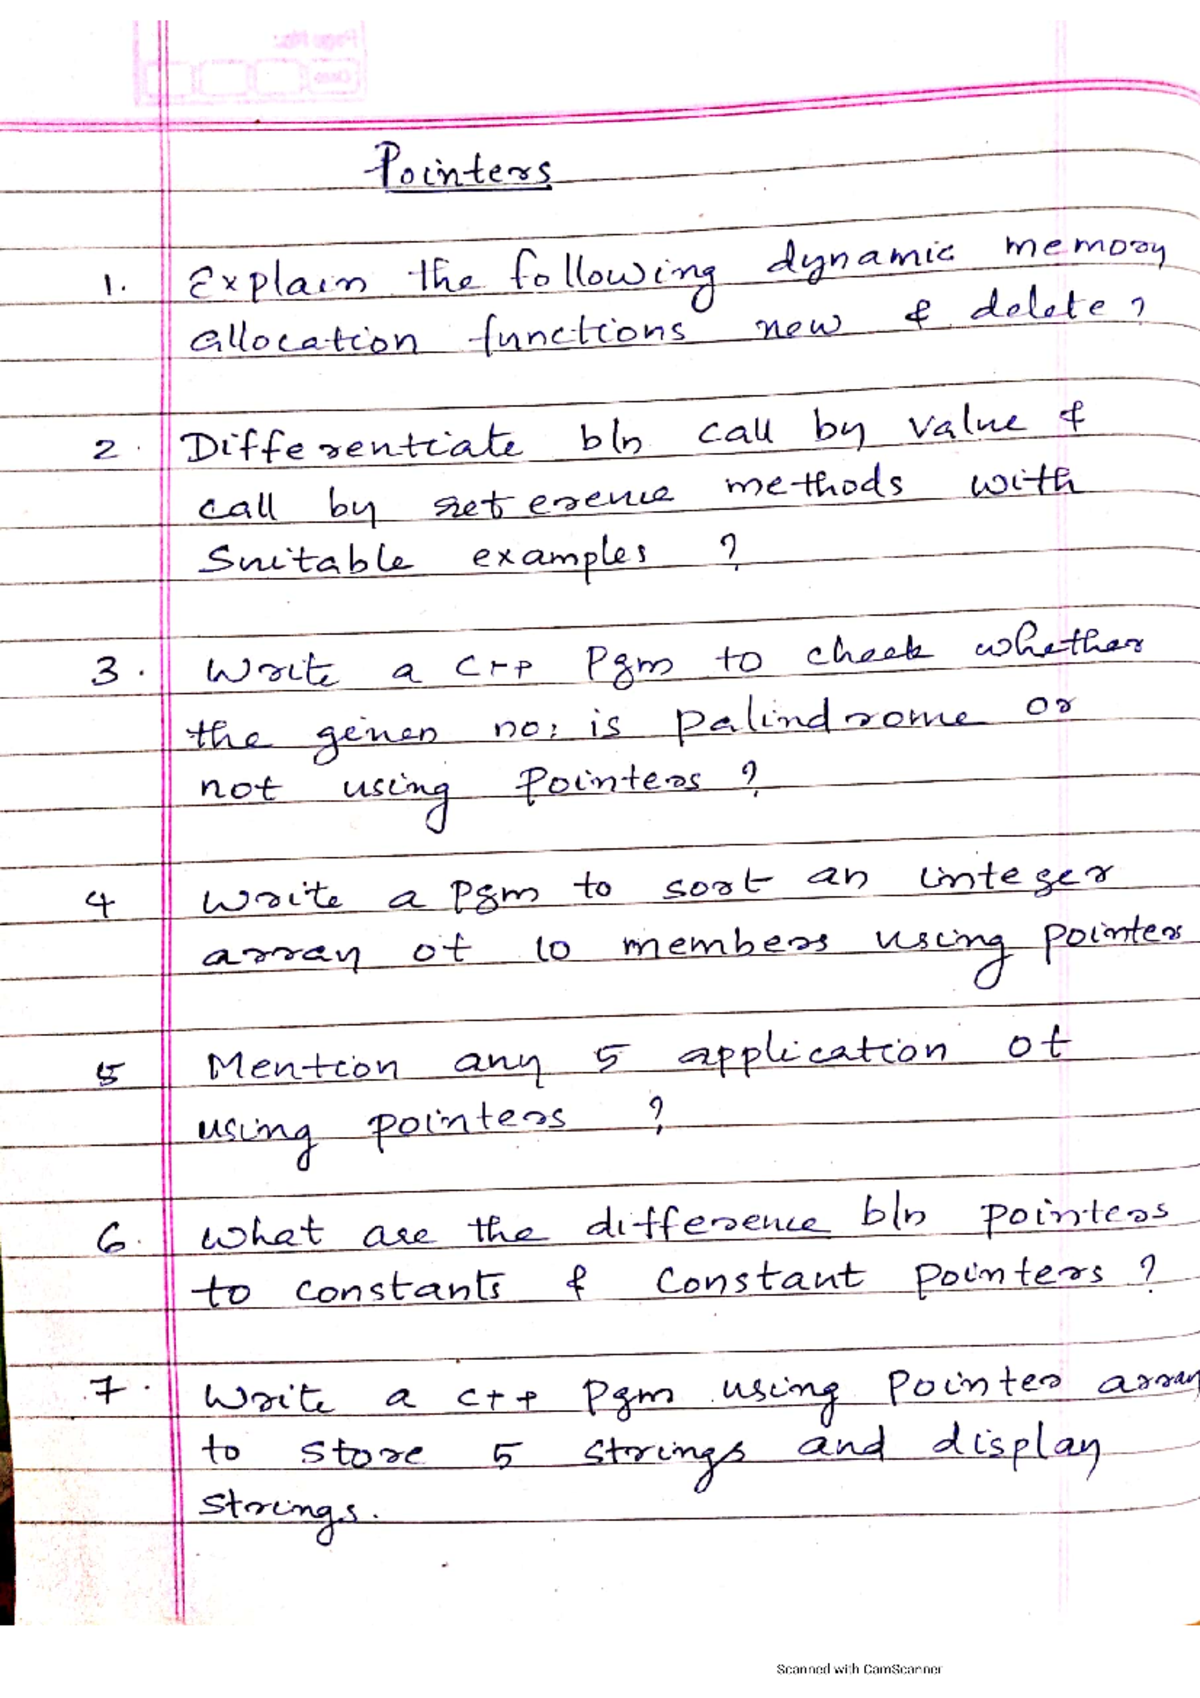 Pointers
1. Explain the following dynamic memory
allocation functions new & delete?
2. Differentiate b/n call by value &
call by reference methods with
Suitable examples ?
3. Write a C++ Pgm to check whether
the given no: is palindrome or
not using Pointers ?
4 Write a Pgm to sort an integer
array of 10 members using pointers
5 Mention any 5 application of
using pointers ?
6. What are the difference b/n pointers
to constants & constant pointers ?
7. Write a C++ Pgm using Pointer array
to store 5 strings and display
strings.
Scanned with CamScanner